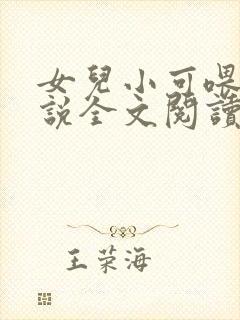 女兒小可喂
說全文閱讀
王荣海